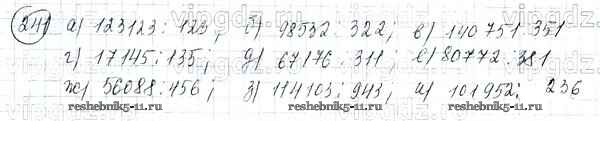 241 а) 123123 : 123; б) 98532 : 322; в) 140751 : 351
г) 17145 : 135; д) 67176 : 311; е) 80772 : 381
ж) 56088 : 456; з) 114103 : 943; и) 101952 : 236
reshebnik5-11.ru reshebnik5-11.ru